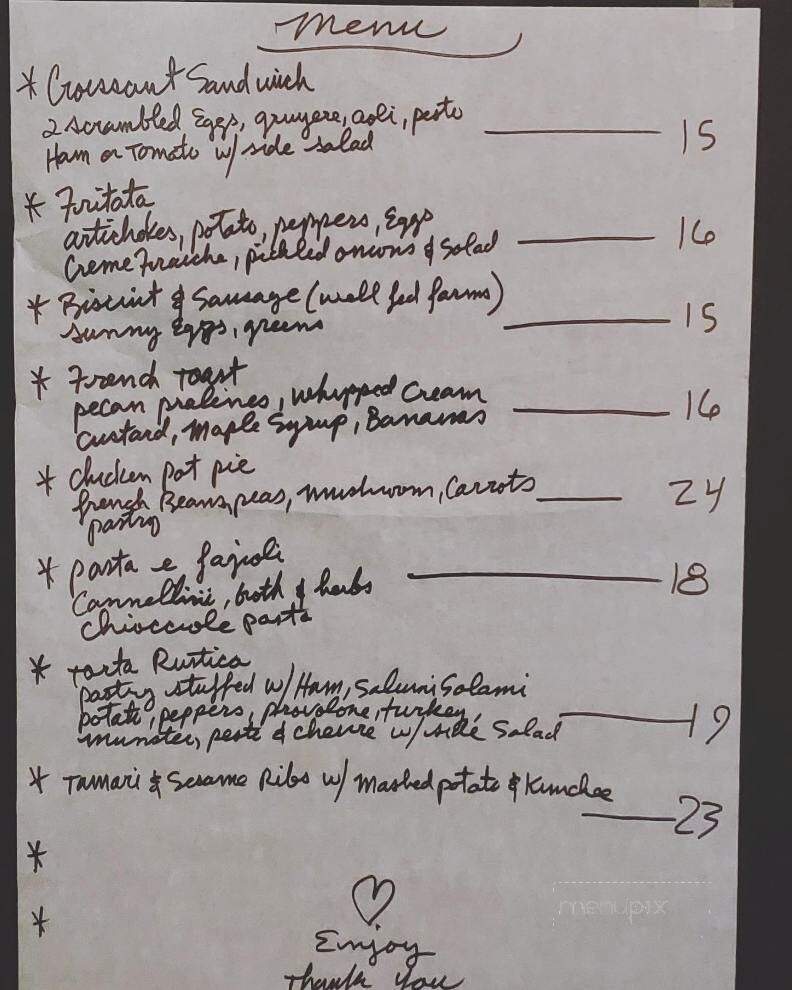 Menu
* Croissant Sandwich
2 scrambled Eggs, gruyere, aoli, pesto
Ham or Tomato w/ side salad
15
* Fritata
artichokes, potato, peppers, Eggs
Creme Fraiche, pickled onions & Salad
16
* Biscuit & Sausage (well fed farms)
Sunny Eggs, greens
15
* French Toast
pecan pralines, whipped Cream
Custard, Maple Syrup, Bananas
16
* Chicken pot pie
french Beans, peas, mushroom, Carrots
pastry
24
* pasta e fagioli
Cannellini, broth & herbs
Chiocciole pasta
18
* Torta Rustica
pastry stuffed w/ Ham, Salumi Salami
potato, peppers, provolone, turkey,
munster, pesto & chevre w/ side Salad
19
* Tamari & Sesame Ribs w/ Mashed potato & Kimchee
23
*
*
♡
Enjoy
Thank You
menupix